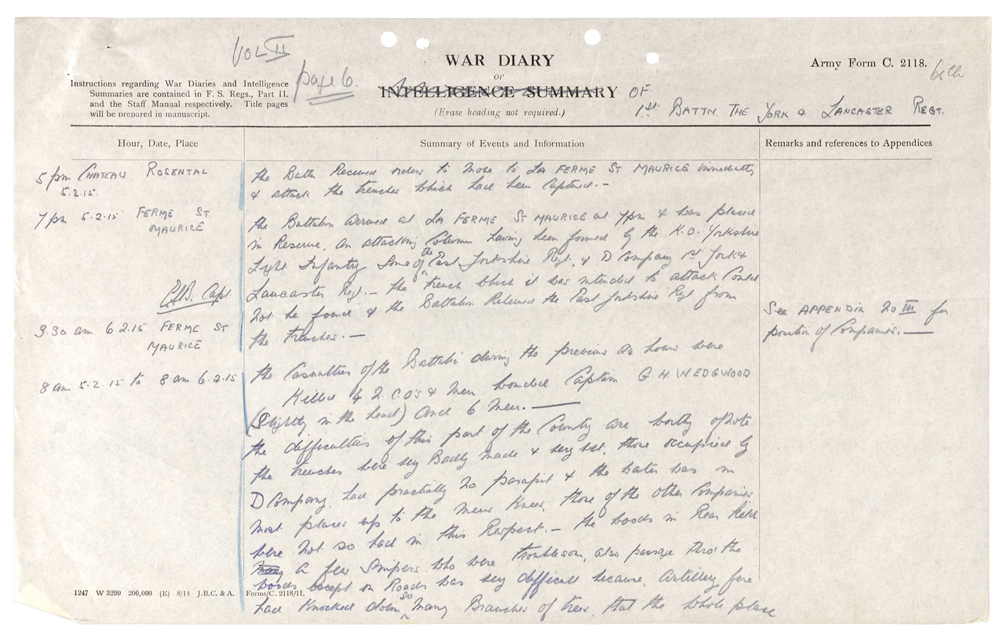 VOL II
page 6.
WAR DIARY
or
INTELLIGENCE SUMMARY OF
(Erase heading not required.)
1st BATTN THE YORK & LANCASTER REGT.
Army Form C. 2118.
Instructions regarding War Diaries and Intelligence
Summaries are contained in F. S. Regs., Part II.
and the Staff Manual respectively. Title pages
will be prepared in manuscript.
Hour, Date, Place
Summary of Events and Information
Remarks and references to Appendices
5 pm CHATEAU ROSENTAL
5.2.15
the Battn Received orders to move to LA FERME ST MAURICE immediately
& attack the trenches which had been captured.—
7 pm 5.2.15 FERME ST
MAURICE
the Battalion arrived at LA FERME ST MAURICE at 7pm & was placed
in Reserve, an attacking Column having been formed by the K.O. Yorkshire
Light Infantry some of the East Yorkshire Regt. & D Company 1st York &
Lancaster Regt.— the trench which it was intended to attack could
not be found & the Battalion Relieved the East Yorkshire Regt from
the trenches.—
Capt
3.30 am 6.2.15 FERME ST
MAURICE
See APPENDIX for
position of Companies.—
8 am 5.2.15 to 8 am 6.2.15
the Casualties of the Battalion during the previous 24 hours were
Killed 4 N.C.O's & Men wounded Captain G H WEDGWOOD
(Slightly in the head) and 6 Men.—
the difficulties of this part of the Country are worthy of note
the trenches were very Badly made & very wet, those occupied by
D Company had practically no parapet & the water was in
most places up to the mens Knees, those of the other Companies
were not so bad in this Respect.— the woods in Rear held
a few Snipers who were troublesome, also passage thro' the
woods except on Roads was very difficult because, Artillery fire
had Knocked down so many Branches of trees, that the whole place
1247 W 3299 200,000 (E) 8/14 J.B.C. & A. Forms/C. 2118/11.